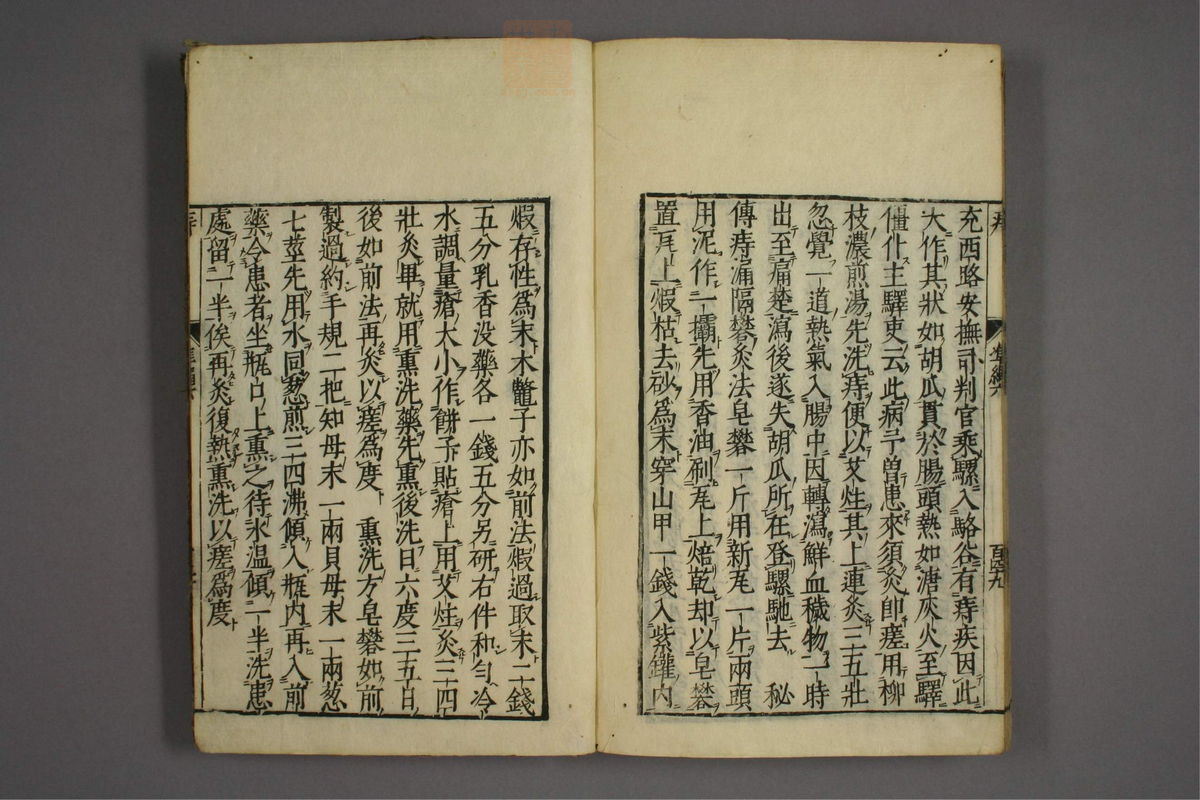 充西路安撫司判官乘騾入駱谷有痔疾因此
大作其狀如胡瓜貫於腸頭熱如溏灰火至驛
僵仆主驛吏云此病予曽患來須灸即瘥用柳
枝濃煎湯先洗痔便以艾炷其上連灸三五壯
忽覺一道熱氣入腸中因轉瀉鮮血穢物一時
出至痛楚瀉後遂失胡瓜所在登騾馳去　秘
傳痔漏隔礬灸法皂礬一斤用新瓦一片兩頭
用泥作一壩先用香油刷瓦上焙乾却以皂礬
置瓦上煆枯去砂爲末穿山甲一錢入紫鑵内
煆存性爲末木鱉子亦如前法煆過取末二錢
五分乳香没藥各一錢五分另研右件和勻冷
水調量瘡大小作餅子貼瘡上用艾炷灸三四
壯灸畢就用熏洗藥先熏後洗日六度三五日
後如前法再灸以瘥爲度　熏洗方皂礬如前
製過約手規二把知母末一兩貝母末一兩葱
七莖先用水同葱煎三四沸傾入瓶内再入前
藥令患者坐瓶口上熏之待水温傾一半洗患
處留一半俟再灸復熱熏洗以瘥爲度
百四十九